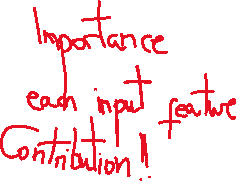 Importance
each input feature
Contribution!!